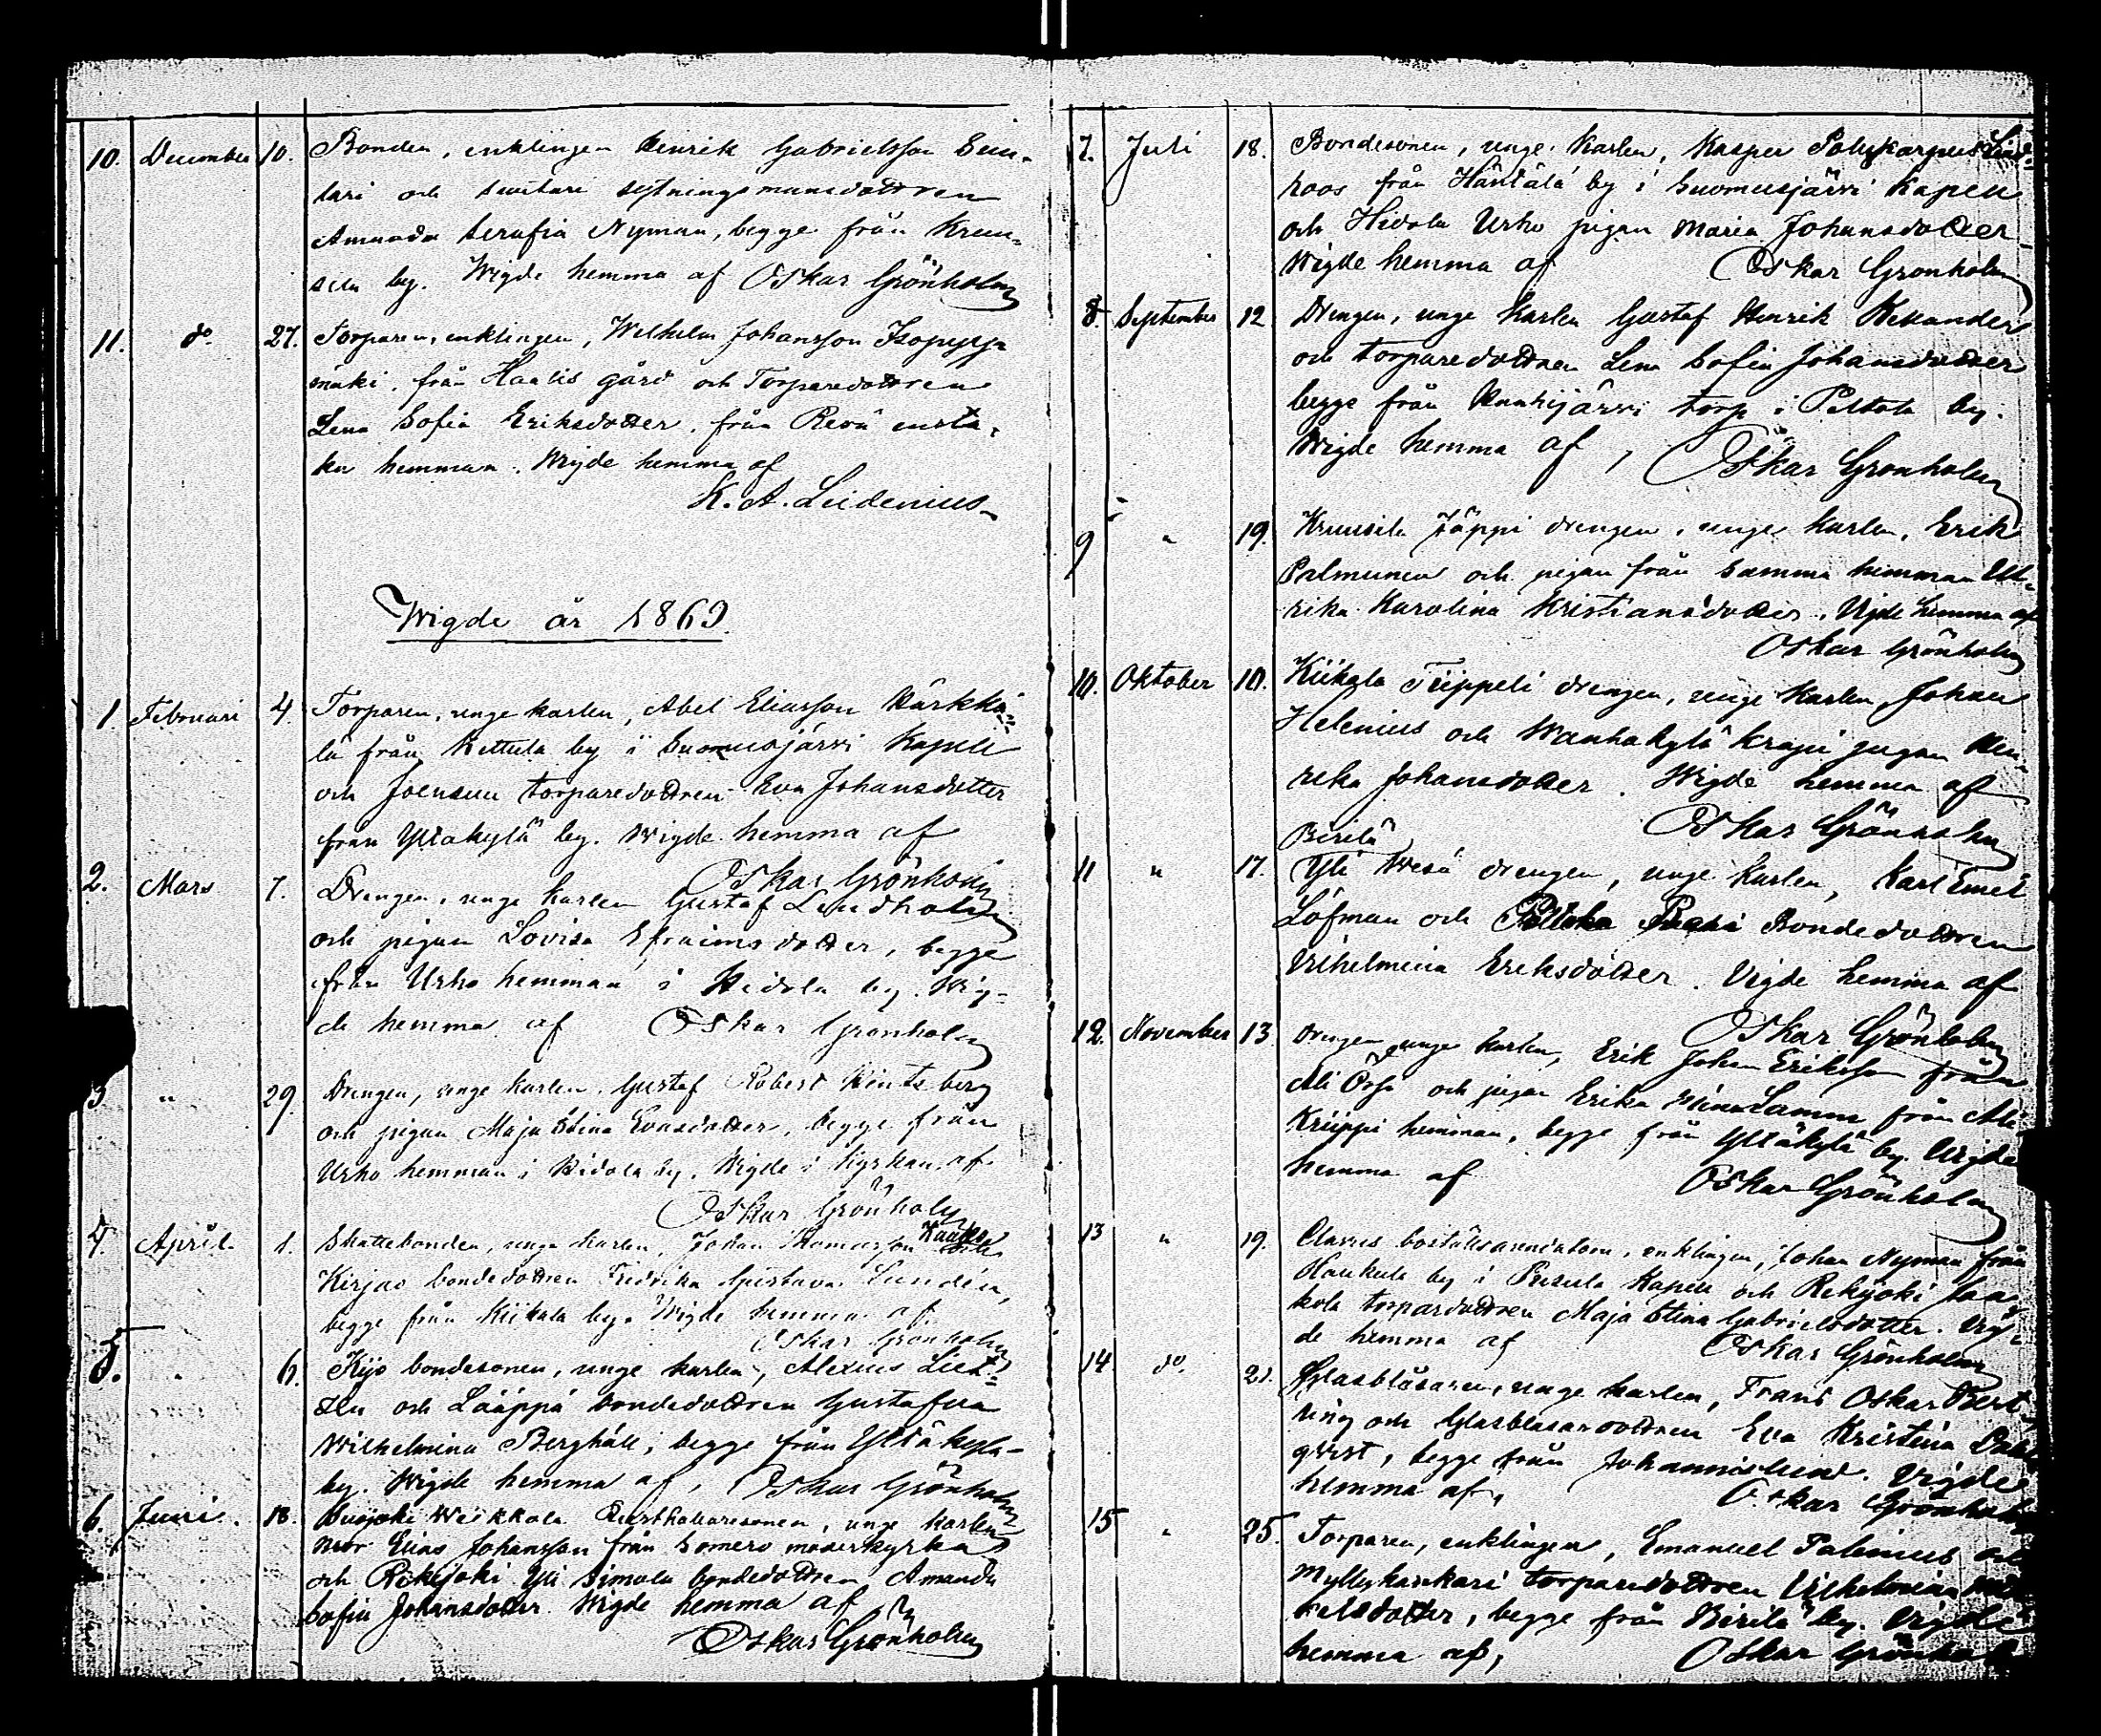 10. December 10. Bonden, enklingen Henrik Gabrielsson
och sytningsmansdottren
Amanda Serafia Nyman, begge från Kruu-
sila by. Wigde hemma af Oskar Grönholm
11. do. 27. Torparen, enklingen, Wilhelm Johansson Isopyyn
mäki, från Haalis gård och Torparedottren
Lena Sofia Eriksdotter, från Revä ensta-
ka hemman. Wigde hemma af
K. A. Leidenius
Wigde år 1869.
1. Februari 4. Torparen, unge karlen, Abel Eliasson Kärkkä-
lä från Kettula by i Suomusjärvi Kapell
och Joensuu torparedottren Eva Johansdotter
från Yltäkylä by. Wigde hemma af
Oskar Grönholm
2. Mars 7. Drengen, unge karlen Gustaf Lindholm
och pigan Lovisa Efraimsdotter, begge
från Urho hemman i Hidola by. Wig-
de hemma af Oskar Grönholm
3 " 29. Drengen, unge karlen. Gustaf Robert
och pigan Maja Stina Evasdotter, begge från
Urho hemman i Hidola by. Wigde i kyrkan af
Oskar Grönholm
4. April 1. Skattebonden, unge karlen, Johan Thomasson
Kirjas bondedottren Fredrika Gustava Lundén,
begge från Kiikala by. Wigde hemma af
Oskar Grönholm
5. " 6. Kijo bondesonen, unge karlen, Alexius
och Lääppä bondedottren Gustafva
Wilhelmina Berghäll, begge från Yltäkylä
by. Wigde hemma af, Oskar Grönholm
6. Juni. 18. Suojoki Weikkola Rusthollaresonen, unge karlen
Elias Johansson från Somero moderkyrka
och Rekijoki Yli Simola bondedottren Amanda
Sofia Johansdotter. Wigde hemma af
Oskar Grönholm
7. Juli 18. Bondesonen, unge karlen, Kasper Polykarpus Lind-
roos från Häntälä by i Suomusjärvi Kapell
och Hidola Urho pigan Maria Johansdotter
Wigde hemma af Oskar Grönholm
8. September 12 Drengen, unge karlen Gustaf Henrik Wexander
och torparedottren Lena Sofia Johansdotter
begge från torp i Peltola by.
Wigde hemma af, Oskar Grönholm
9 " 19. Kruusila Jäppi drengen, unge karlen, Erik
Palmunen och pigan från samma hemman Ul-
rika Karolina Kristiansdotter. Vigde hemma af
Oskar Grönholm
10. Oktober 10. Kiikala Tüppeli drengen, unge karlen, Johan
Helenius och Wanhakylä Krapi pigan Hen-
rika Johansdotter. Wigde hemma af
Oskar Grönholm
Pirilä
11 " 17. Yli Wesä drengen, unge karlen, Karl Emel
Löfman och Bondedottren
Vilhelmina Eriksdotter. Vigde hemma af
Oskar Grönholm
12. November 13. Drengen, unge karlen, Erik Johan Eriksson från
Ali och pigan Erika Mina Lamm från Ali
Krüppi hemman, begge från Yltäkylä by. Wigde
hemma af Oskar Grönholm
13 " 19. Clavus boställsarrendatorn, enklingen, Johan Nyman från
Haukula by i Pusula Kapell och Rekijoki Jaa-
kola torpardottren Maja Stina Gabrielsdotter. Vig-
de hemma af Oskar Grönholm
14 do. 21. Glasblåsaren, unge karlen, Frans Oskar
ring och Glasblåsardottren Eva Kristina
qvist, begge från Johannislund. Vigde
hemma af, Oskar Grönholm
15 " 25. Torparen, enklingen, Emanuel Palenius och
Myllykankari torparedottren Vilhelmina Mi-
kelsdotter, begge från Pirilä by. Vigde
hemma af, Oskar Grönholm